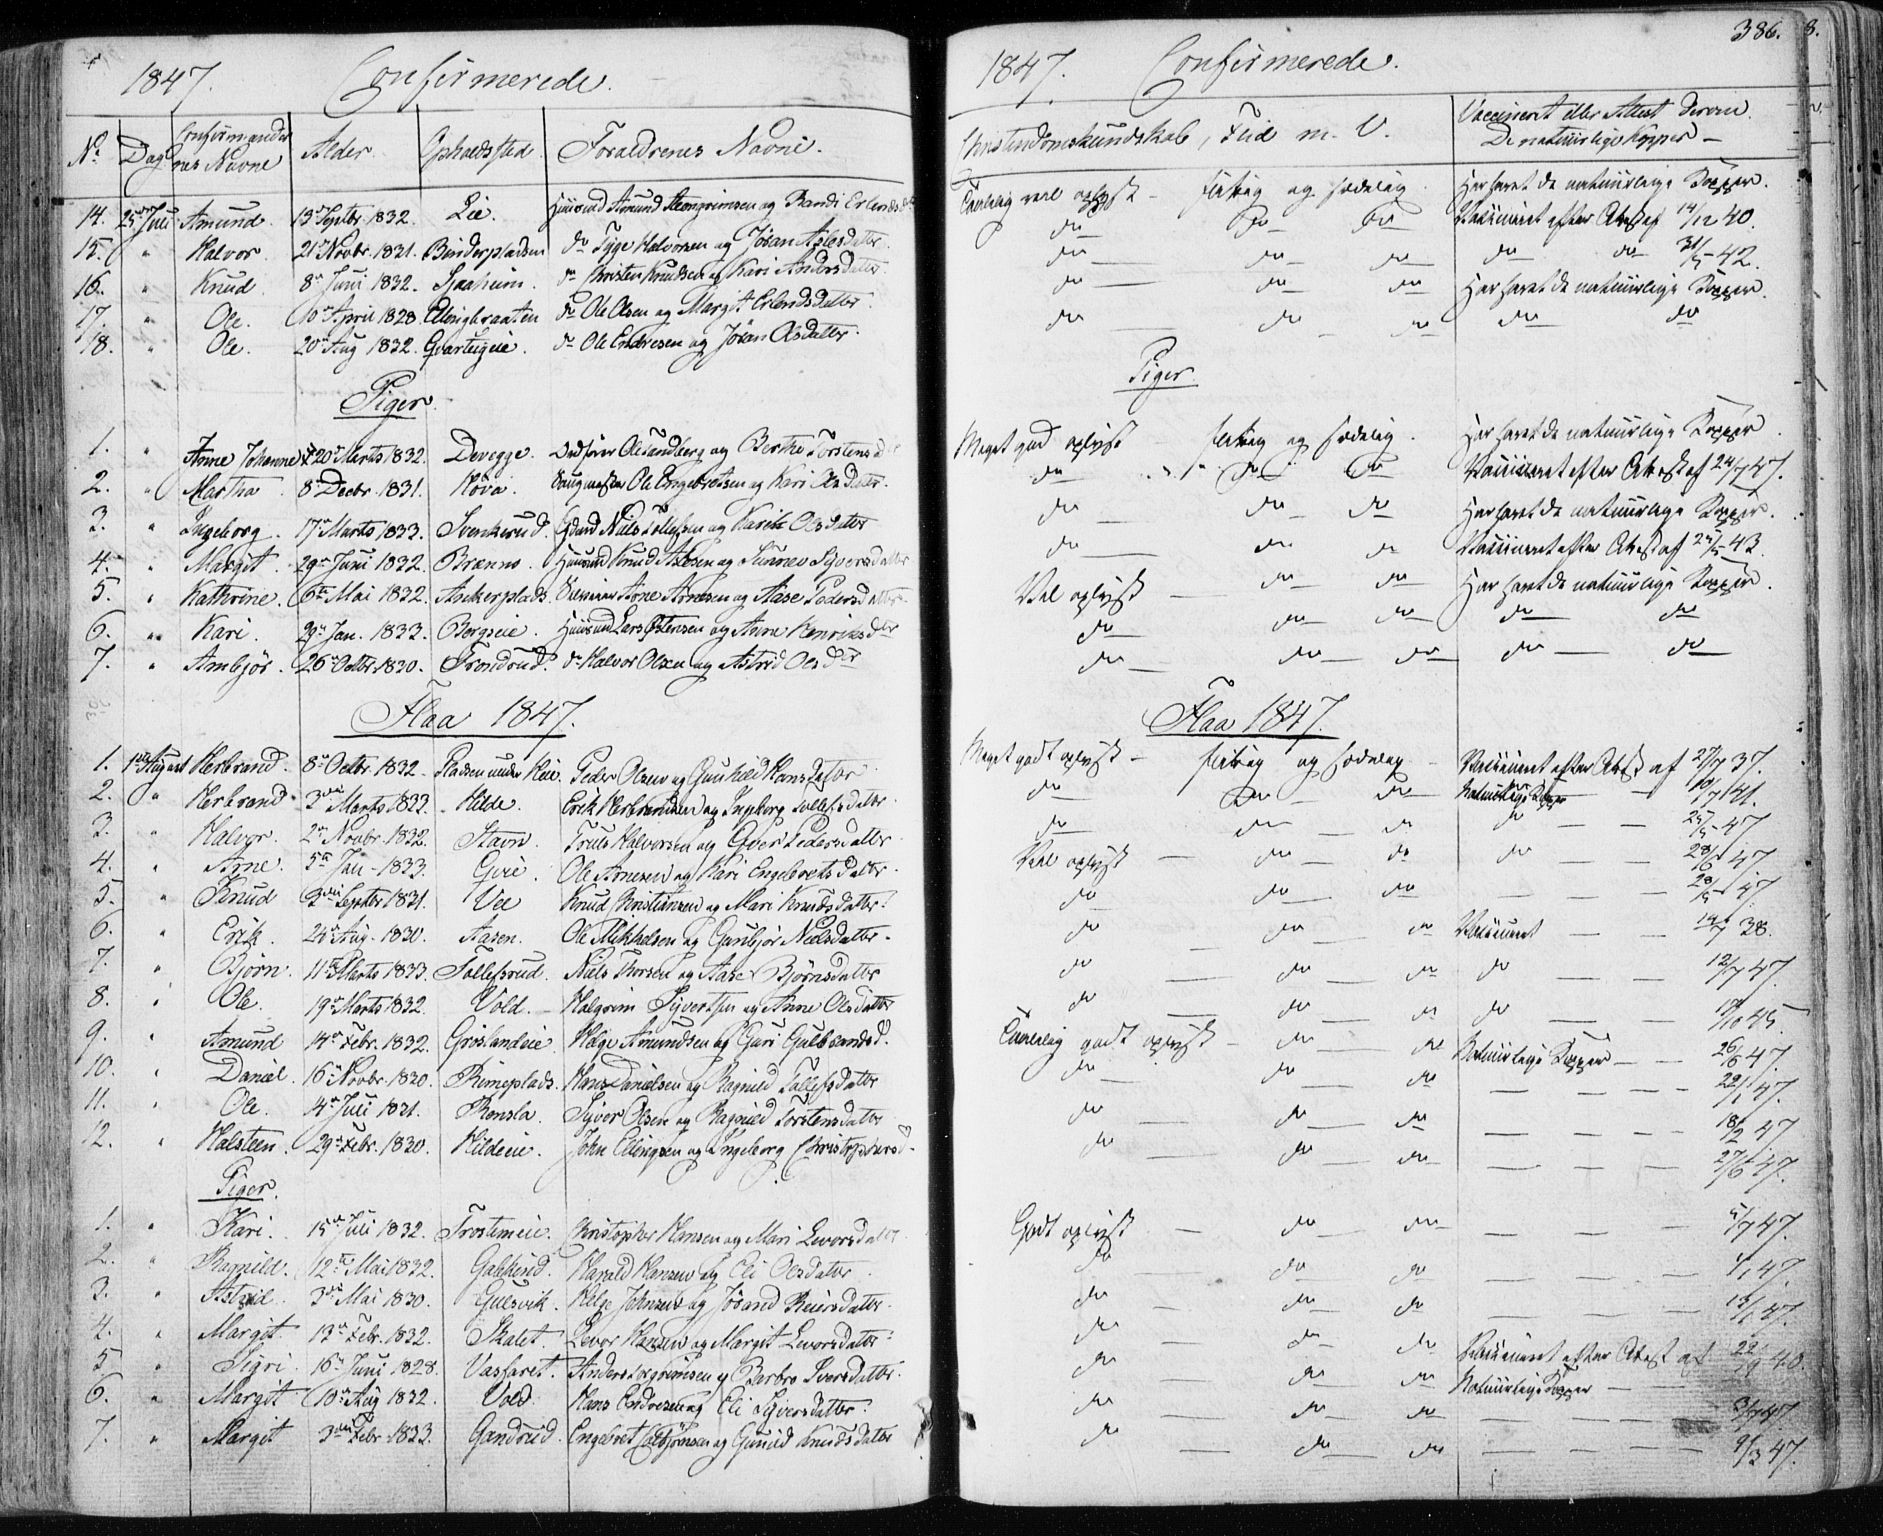 1847. Confirmerede.
No. Dag Confirmandernes Navne Alder. Opholdssted. Forældrenes Navne.
14. 25de Juli Amund. 13de Septbr. 1832. Lie. Huusmd Amund Steengrimsen og Randi Erlends
15. " Halvor. 21de Novbr. 1831. do Tyge Halvorsen og Jøran Aslesdatter.
16. " Knud. 8de Juni 1832. do Christen Knudsen og Kari Andersdatter.
17. " Ole. 10de April 1828. do Ole Olsen og Margit Erlendsdatter.
18. " Ole. 20de Aug 1832. do Ole Endresen og Jøran Olsdatter.
Piger.
1. " Anne Johanne 20de Marts 1832. Devegge. Ole Sandberg og Berthe Torstensd
2. " Martha 8de Decbr. 1831. Hova. Ole Engebretsen og Kari Olsdatter.
3. " Ingeborg. 17de Marts 1833. Svenkerud. Gdmd Niels Tollefsen og Karin Olsdatter
4. " Margit. 29de Juni 1832. Brænno. Huusmd Knud Aslesen og Sunnev Syversdatter
5. " Kathrine. 6te Mai 1832. Ankerplads. Arne Arnesen og Aase Pedersdatter
6. " Kari. 29de Jan. 1833. Bergseie. Huusmd Lars Østensen og Anne Henriksdtr
7. " Ambjør. 26de Octbr. 1830. Trondrud. do Halvor Olsen og Astrid Olsdtr
Flaa 1847.
1. 1ste August Herbrand. 8de Octbr. 1832. Pladsen under Høie. Peder Olsen og Gunhild Hansdatter
2. " Herbrand. 3die Marts 1833. Hilde. Erik Herbrandsen og Ingeborg Tollefsdatter.
3. " Halvor. 2den Novbr. 1832. Stavn. Truls Halvorsen og Pedersdatter
4. " Arne. 5te Jan. 1833. Ole Arnesen og Kari Engebretsdatter.
5. " Knud 3die Septbr 1831. Vee Knud Christiansen og Mari Knudsdatter.
6. " Erik. Aug. 1830. Aasen. Ole Mikkelsen og Gunbjør Nielsdatter.
7. " Bjørn. 11te Marts 1833. Tollefsrud. Niels Thorsen og Aase Bjørnsdatter
8. " Ole. 19de Marts 1832. Vold. Halgrim Syvertsen og Anne Olsdatter
9. " Amund 14de Febr. 1832. Grøslandeie. Helge Amundsen og Guri Gulbrandsd.
10. " Daniel. 16de Novbr. 1830. Rimeplads. Hans Danielsen og Ragnild Tollefsdatter
11. " Ole. 14de Juli 1831. Rensla. Syver Olsen og Ragnild Torstensdatter
12. " Halsteen. 29de Febr. 1830. Hildeeie. John Ellingsen og Ingeborg Christophersd.
Piger.
1. " Kari. 15de Juli 1832. Trostemeie. Christopher Hansen og Mari Levorsdatter
2. " Ragnild. 12te Mai 1832. Harald Hansen og Eli Olsdatter.
3. " Astrid. 3die Mai 1830. Gulsvik. Helge Johnsen og Jørand Reiersdatter.
4. " Margit. 13de Febr. 1832. Skalet. Levor Hansen og Margit Levorsdatter.
5. " Sigri. 16de Juni 1828. Vasfaret. Anders Torgrimsen og Barbro Iversdatter.
6. " Margit 10de Aug 1832. Vold. Hans Endresen og Eli Syversdatter.
7. " Margit 3die Febr. 1833. Gandrud. Engebret og Gunild Knudsdatter
386.
1847. Confirmerede.
Christendomskundskab, Flid m. V. Vaccineret eller Attest derom
De naturlige Kopper
Temmelig vel oplyst – flittig og sædelig. Har havt de naturlige Kopper.
do do do Vaccineret efter Attest af 14/12 40.
do do do do do 31/5 42.
do do do Har havt de naturlige Kopper.
do do do do do
Piger.
Meget god oplyst flittig og sædelig. Har havt de naturlige Kopper
do do do Vaccineret efter Attest af 24/7 47.
do do do Har havt de naturlige Kopper.
do do do Vaccineret efter Attest af 43.
Vel oplyst do do Har havt de naturlige Kopper.
do do do do do
do do do do do
Flaa 1847.
Meget godt oplyst – flittig og sædelig – Vaccineret efter Attest af 27/7 37.
do do do Naturlige Kopper 10/7 41.
do do do do 47
Vel oplyst – do do do 47
do do do 47
do do do Vaccineret 14/7 38.
do do do do 12/7 47.
do do do do 45.
Temmelig godt oplyst – do do Naturlige Kopper 47.
do do do 22/1 47.
do do do 18/2 47
do do do 27/6 47.
Godt oplyst do do 5/7 47.
do do do 1/1 47.
do do do 47.
do do do Vaccineret efter Attest af 40.
do do do Naturlige Kopper
do do do 47
do do do 9/3 47.